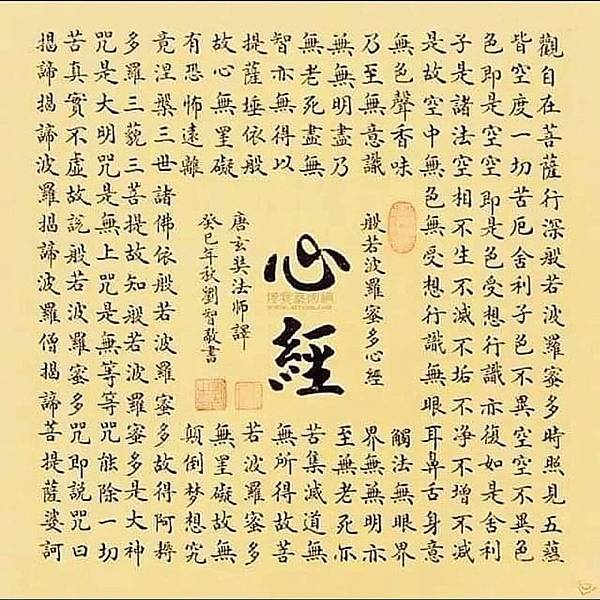 觀自在菩薩行深般若波羅蜜多時照見五蘊
皆空度一切苦厄舍利子色不異空空不異色
色即是空空即是色受想行識亦復如是舍利
子是諸法空相不生不滅不垢不淨不增不減
是故空中無色無受想行識無眼耳鼻舌身意
無色聲香味
觸法無眼界
乃至無意識
界無無明亦
無無明盡乃
至無老死亦
無老死盡無
苦集滅道無
智亦無得以
無所得故菩
提薩埵依般
若波羅蜜多
故心無罣礙
無罣礙故無
有恐怖遠離
顛倒梦想究
竟涅槃三世諸佛依般若波羅蜜多故得阿耨
多羅三藐三菩提故知般若波羅蜜多是大神
咒是大明咒是無上咒是無等等咒能除一切
苦真實不虛故說般若波羅蜜多咒即説咒曰
揭諦揭諦波羅揭諦波羅僧揭諦菩提薩婆訶
般若波羅蜜多心經
心經
唐玄奘法师譯
癸巳年秋劉智敬書